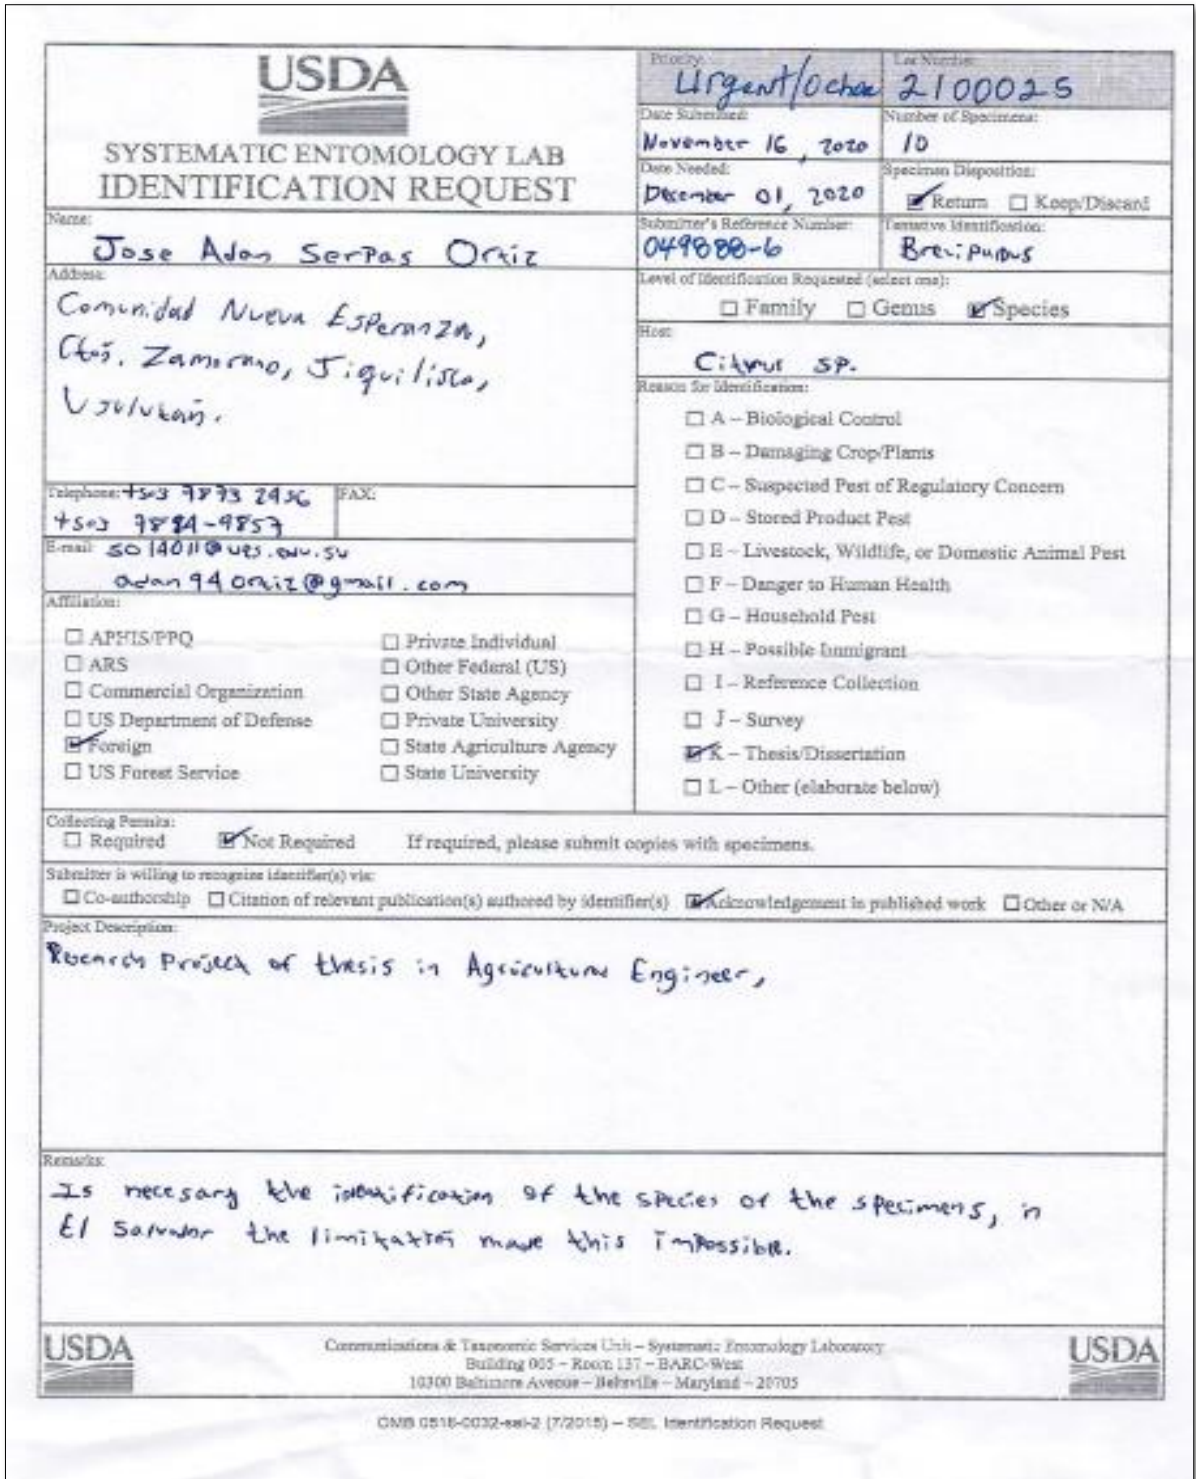 USDA
SYSTEMATIC ENTOMOLOGY LAB
IDENTIFICATION REQUEST
Priority:
Urgent/Ochoa
Lot Number:
2100025
Date Submitted:
November 16, 2020
Number of Specimens:
10
Date Needed:
December 01, 2020
Specimen Disposition:
Return Keep/Discard
Name:
Jose Adan Serpas Ortiz
Submitter's Reference Number:
049888-6
Tentative Identification:
Address:
Comunidad Nueva Esperanza,
Zamorano, Jiquilisco,
Usulután.
Level of Identification Requested (select one):
Family Genus Species
Host:
Citrus SP.
Reason for Identification:
A – Biological Control
B – Damaging Crop/Plants
C – Suspected Pest of Regulatory Concern
D – Stored Product Pest
E – Livestock, Wildlife, or Domestic Animal Pest
F – Danger to Human Health
G – Household Pest
H – Possible Immigrant
I – Reference Collection
J – Survey
K – Thesis/Dissertation
L – Other (elaborate below)
Telephone: +503 7873 2456
+503 7884-9857
FAX:
E-mail: SO14011@ues.edu.sv
adan94ortiz@gmail.com
Affiliation:
APHIS/PPQ
ARS
Commercial Organization
US Department of Defense
Foreign
US Forest Service
Private Individual
Other Federal (US)
Other State Agency
Private University
State Agriculture Agency
State University
Collecting Permits:
Required Not Required If required, please submit copies with specimens.
Submitter is willing to recognize identifier(s) via:
Co-authorship Citation of relevant publication(s) authored by identifier(s) Acknowledgement in published work Other or N/A
Project Description:
Research Project of thesis in Agricultural Engineer,
Remarks:
Is necesary the identification of the species of the specimens, in
El Salvador the limitation made this impossible.
USDA
Communications & Taxonomic Services Unit – Systematic Entomology Laboratory
Building 005 – Room 137 – BARC-West
10300 Baltimore Avenue – Beltsville – Maryland – 20705
USDA
OMB 0518-0032-sel-2 (7/2015) – SEL Identification Request